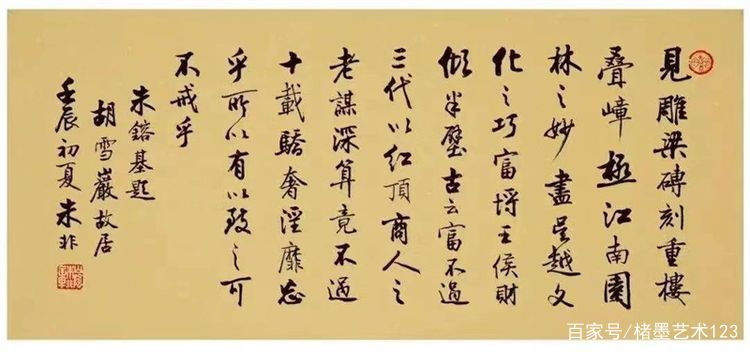 見雕梁磚刻重樓
疊嶂極江南園
林之妙盡吳越文
化之巧富埒王侯財
傾半壁古云富不過
三代以紅頂商人之
老謀深算竟不過
十載驕奢淫靡忘
乎所以有以致之可
不戒乎
朱鎔基題
胡雪巖故居
壬辰初夏 非
百家号/楮墨艺术123